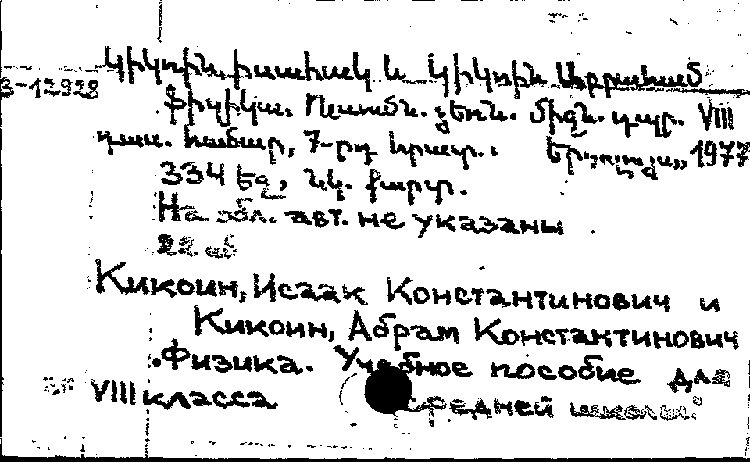 Կիկոին, Իսահակ և Կիկոին Աբրահամ
3-12928
Ֆիզիկա. Ուսումն. ձեռն. միջն. դպր. VIII
դաս. համար, 7-րդ հրատ.: Եր., „Լույս„, 1977
334 էջ, նկ. քարտ.
На обл. авт. не указаны
Кикоин, Исаак Константинович и
Кикоин, Абрам Константинович
Физика. Учебное пособие для
VIII класса средней школы.